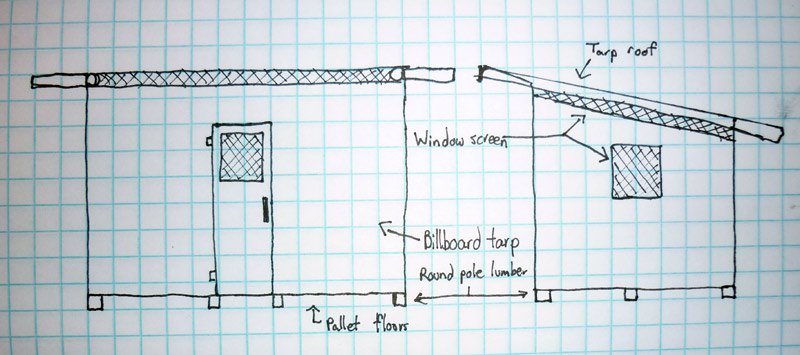 Tarp roof
Window screen
Billboard tarp
Round pole lumber
Pallet floors